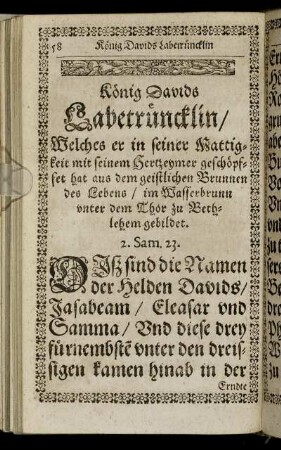 58 König Davids Labetrüncklin
König Davids
Labetrüncklin/
Welches er in seiner Mattig-
keit mit seinem Hertzeymer geschöpf-
fet hat aus dem geistlichen Brunnen
des Lebens / im Wasserbrunn
vnter dem Thor zu Beth-
lehem gebildet.
2. Sam. 23.
DJß sind die Namen
der Helden Davids/
Jasabeam / Eleasar vnd
Samma / Vnd diese drey
fürnembstē vnter den dreis-
sigen kamen hinab in der
Erndte